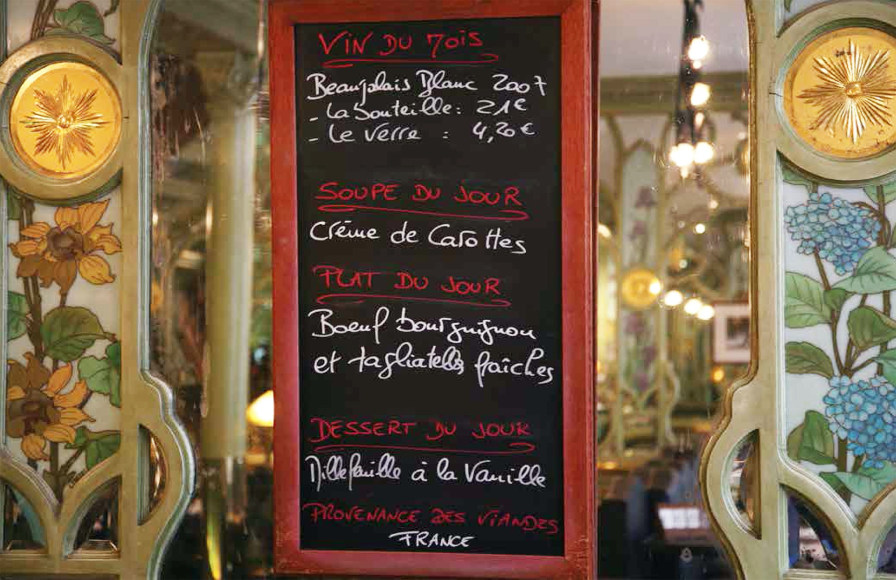 VIN DU MOIS
Beaujolais Blanc 2007
- La bouteille : 21€
- Le verre : 4,20€
SOUPE DU JOUR
Crème de Carottes
PLAT DU JOUR
Boeuf bourguignon
et tagliatelles fraîches
DESSERT DU JOUR
Millefeuille à la Vanille
PROVENANCE DES VIANDES
FRANCE